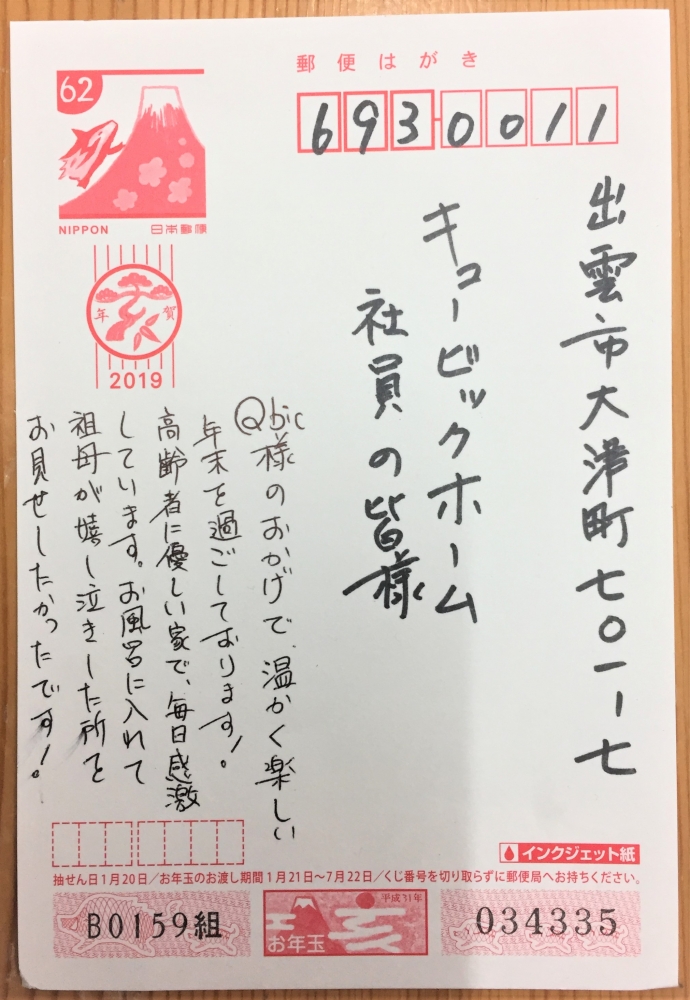 郵便はがき
62
NIPPON 日本郵便
6930011
年賀
2019
出雲市大津町七〇一-七
キュービックホーム
社員の皆様
Qbic様のおかげで、温かく楽しい
年末を過ごしております!
高齢者に優しい家で、毎日感激
しています。お風呂に入れて
祖母が嬉し泣きした所を
お見せしたかったです!
インクジェット紙
抽せん日1月20日/お年玉のお渡し期間1月21日~7月22日/くじ番号を切り取らずに郵便局へお持ちください。
B0159組
平成31年
お年玉
034335